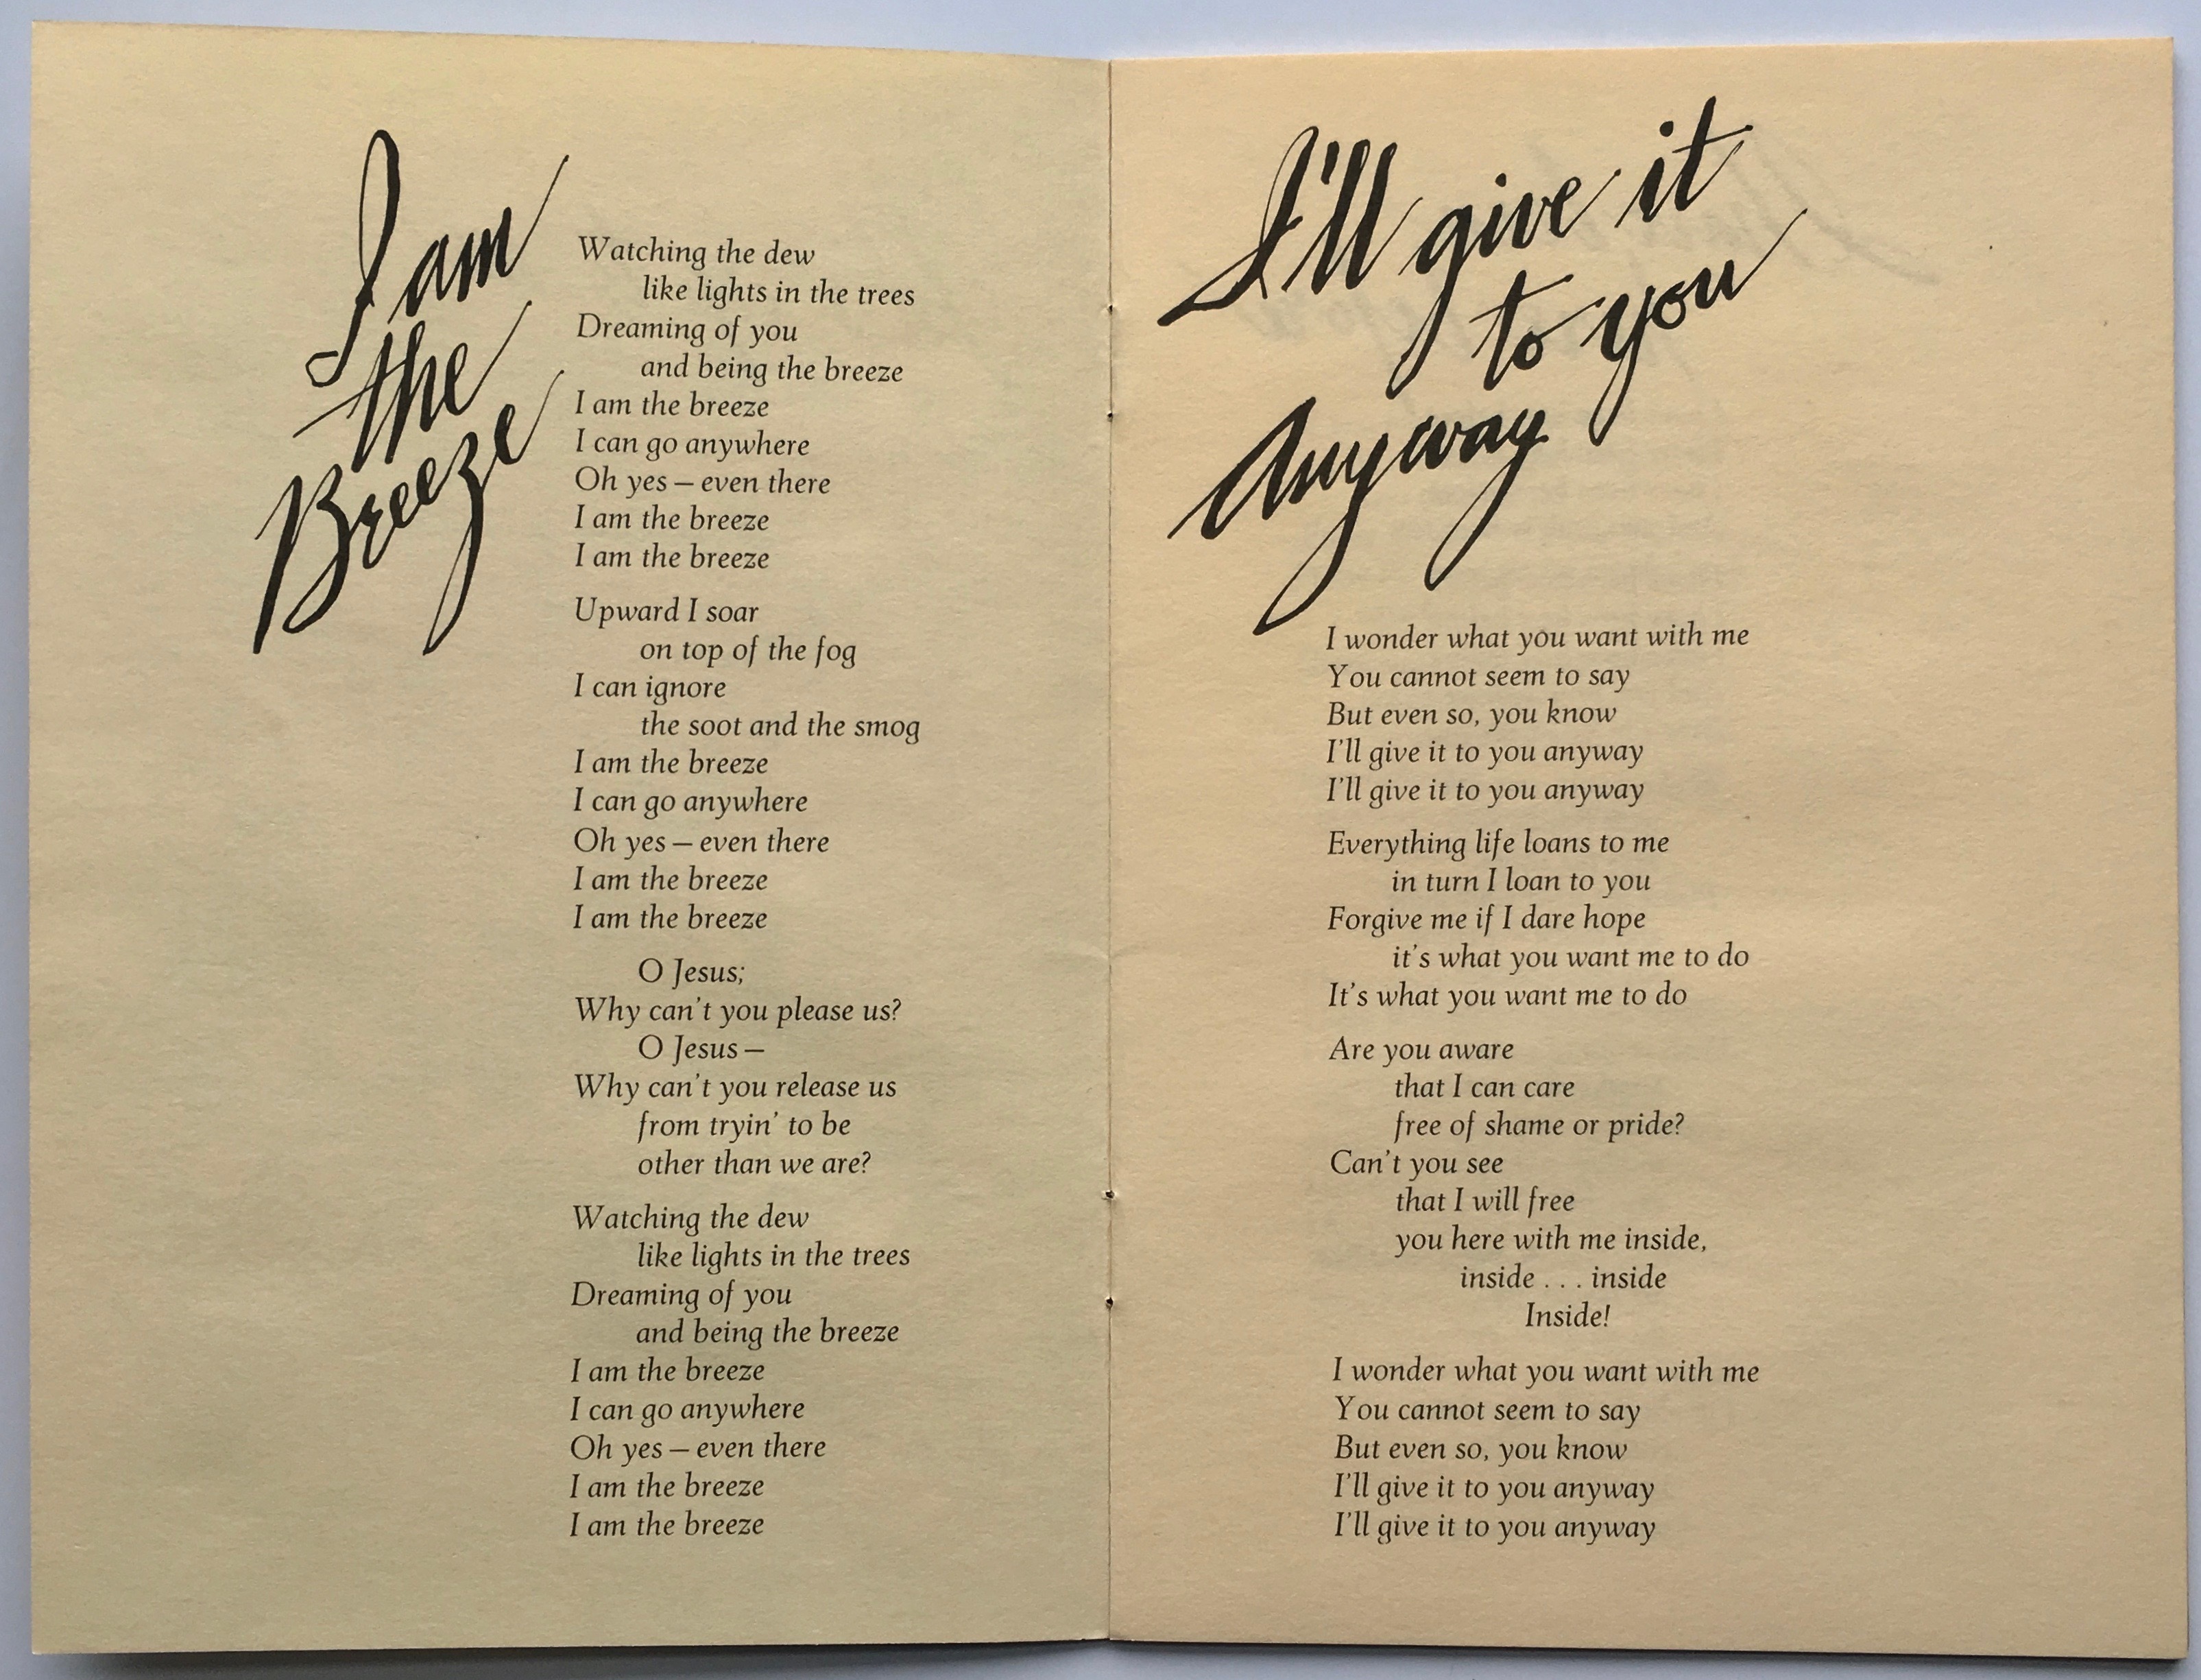 I am
the
Breeze
Watching the dew
like lights in the trees
Dreaming of you
and being the breeze
I am the breeze
I can go anywhere
Oh yes – even there
I am the breeze
I am the breeze
Upward I soar
on top of the fog
I can ignore
the soot and the smog
I am the breeze
I can go anywhere
Oh yes – even there
I am the breeze
I am the breeze
O Jesus;
Why can't you please us?
O Jesus –
Why can't you release us
from tryin' to be
other than we are?
Watching the dew
like lights in the trees
Dreaming of you
and being the breeze
I am the breeze
I can go anywhere
Oh yes – even there
I am the breeze
I am the breeze
I'll give it
to you
Anyway
I wonder what you want with me
You cannot seem to say
But even so, you know
I'll give it to you anyway
I'll give it to you anyway
Everything life loans to me
in turn I loan to you
Forgive me if I dare hope
it's what you want me to do
It's what you want me to do
Are you aware
that I can care
free of shame or pride?
Can't you see
that I will free
you here with me inside,
inside . . . inside
Inside!
I wonder what you want with me
You cannot seem to say
But even so, you know
I'll give it to you anyway
I'll give it to you anyway